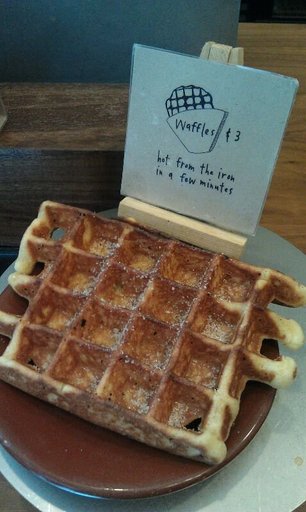 Waffles $3
hot from the iron
in a few minutes